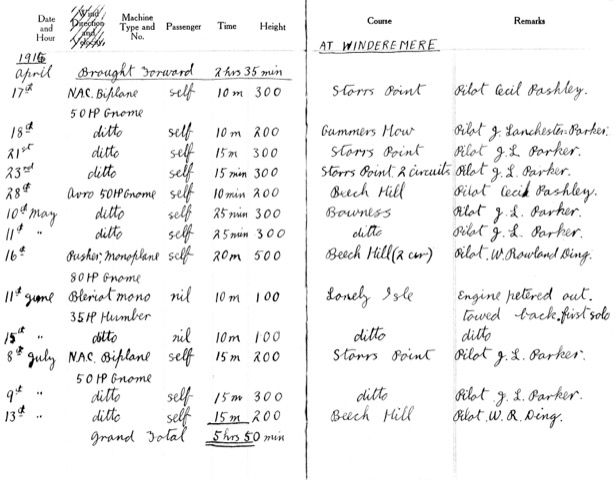 Date and Hour Wind Direction and Velocity Machine Type and No. Passenger Time Height Course Remarks
1916 AT WINDEREMERE
April Brought Forward 2 hrs 35 min
17th N.A.C. Biplane self 10 m 300 Storrs Point Pilot Cecil Pashley.
50 HP Gnome
18th ditto self 10 m 200 Gummers How Pilot J. Lanchester-Parker.
21st ditto self 15 m 300 Storrs Point Pilot J. L. Parker.
23rd ditto self 15 min 300 Storrs Point 2 circuits Pilot J. L. Parker.
28th Avro 50 HP Gnome self 10 min 200 Beech Hill Pilot Cecil Pashley.
10th May ditto self 25 min 300 Bowness Pilot J. L. Parker.
11th " ditto self 25 min 300 ditto Pilot J. L. Parker.
16th Pusher, monoplane self 20 m 500 Beech Hill (2 cir) Pilot. W. Rowland Ding.
80 HP Gnome
11th June Bleriot mono nil 10 m 100 Lonely Isle Engine petered out.
35 HP Humber towed back. first solo
15th " ditto nil 10 m 100 ditto ditto
8th July N.A.C. Biplane self 15 m 200 Storrs Point Pilot J. L. Parker.
50 HP Gnome
9th " ditto self 15 m 300 ditto Pilot J. L. Parker.
13th " ditto self 15 m 200 Beech Hill Pilot. W. R. Ding.
Grand Total 5 hrs 50 min